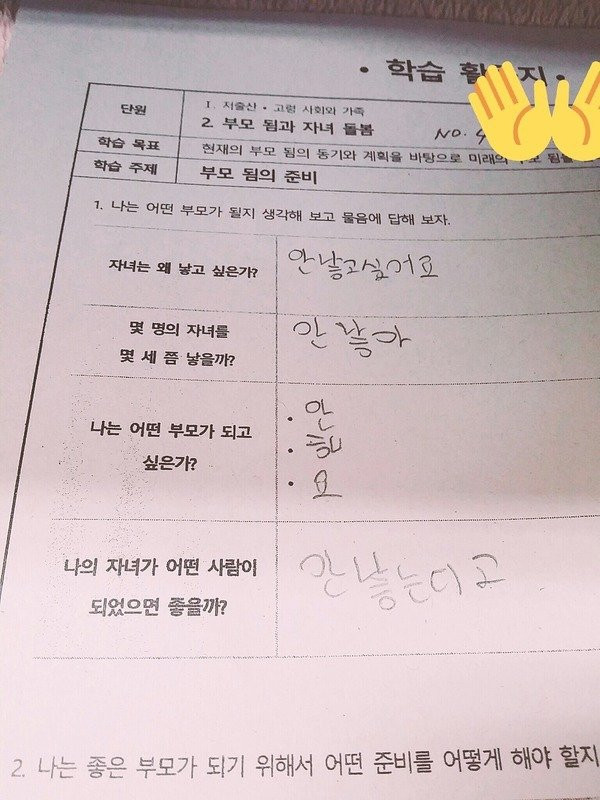 • 학습 활 지 •
단원
Ⅰ. 저출산 • 고령 사회와 가족
2. 부모 됨과 자녀 돌봄
NO. 4
학습 목표
현재의 부모 됨의 동기와 계획을 바탕으로 미래의 부모 됨을
학습 주제
부모 됨의 준비
1. 나는 어떤 부모가 될지 생각해 보고 물음에 답해 보자.
자녀는 왜 낳고 싶은가?
안낳고싶어요
몇 명의 자녀를
몇 세 쯤 낳을까?
안 낳아
나는 어떤 부모가 되고
싶은가?
• 안
• 해
• 요
나의 자녀가 어떤 사람이
되었으면 좋을까?
안 낳는다고
2. 나는 좋은 부모가 되기 위해서 어떤 준비를 어떻게 해야 할지